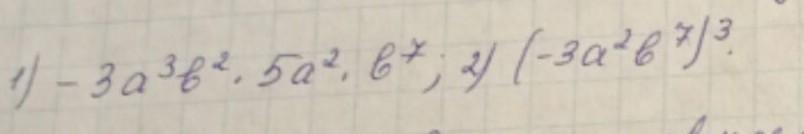 1) -3a³b²·5a²·b⁷; 2) (-3a²b⁷)³.